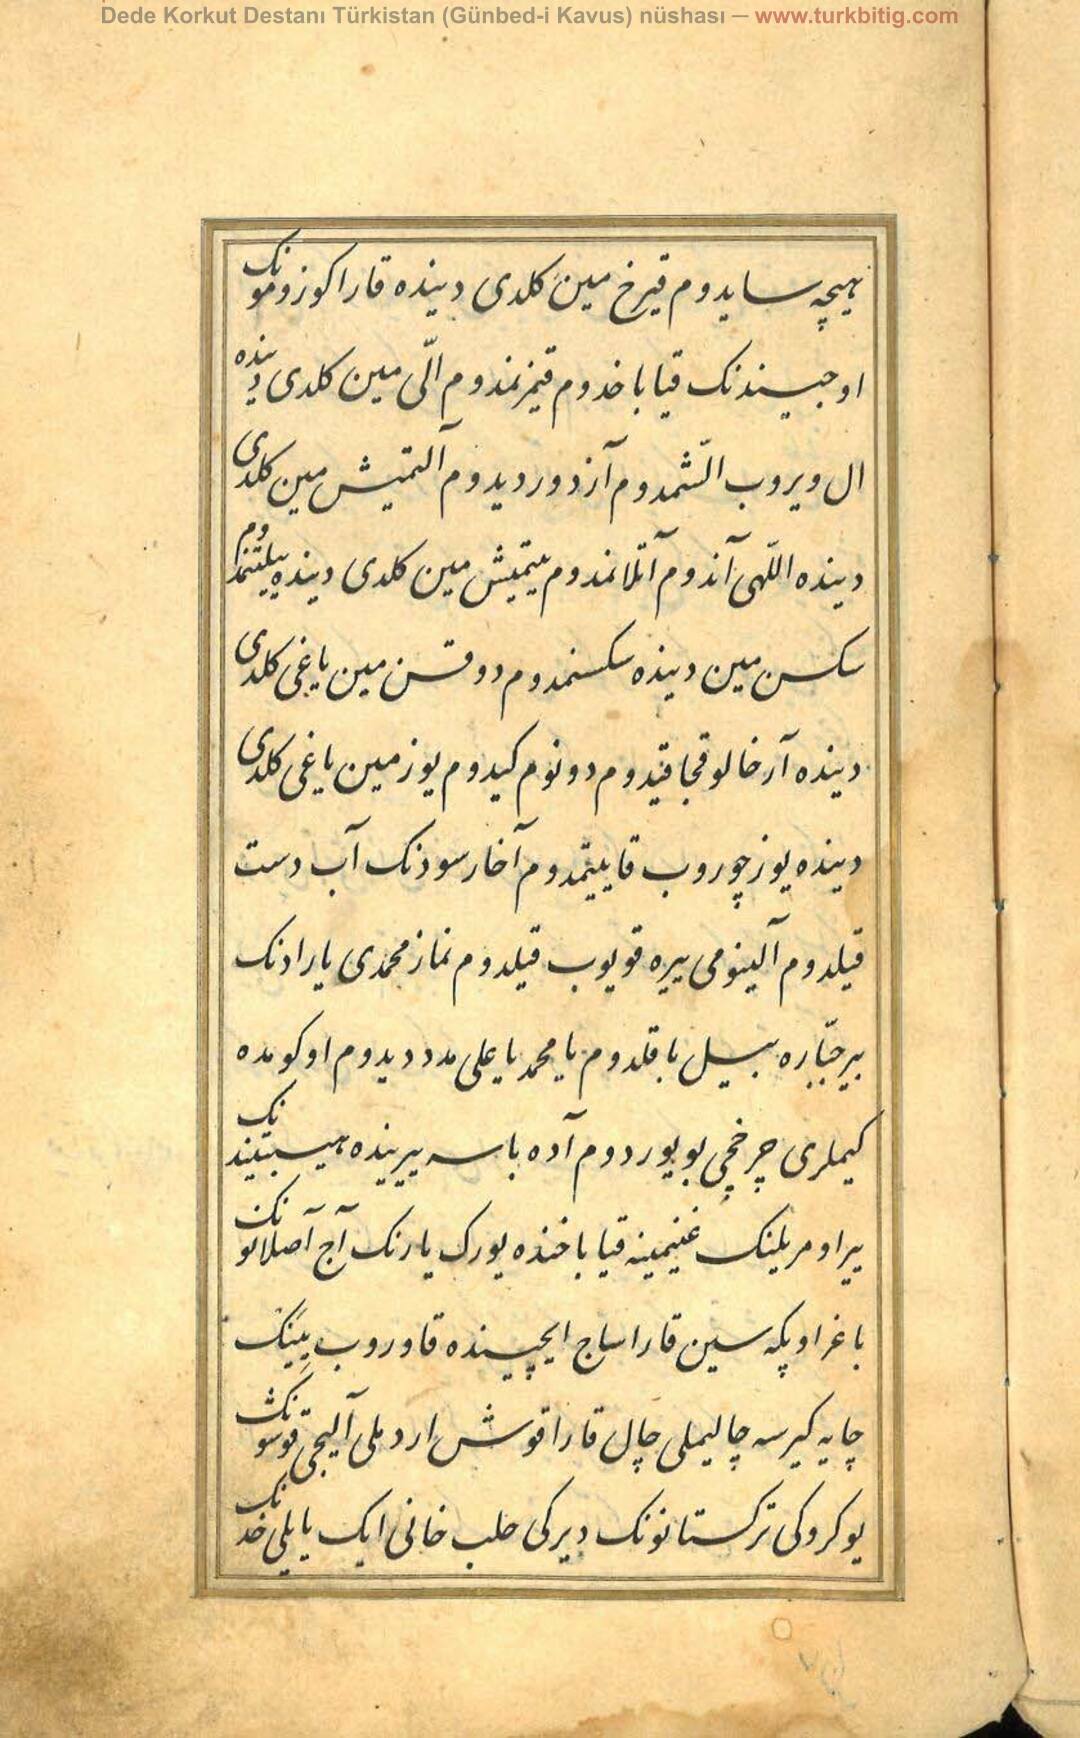 Dede Korkut Destanı Türkistan (Günbed-i Kavus) nüshası — www.turkbitig.com
هیچه سایدوم قیرخ مین کلدی دینده قارا کوزومونک
اوجیندنک قیا باخدوم قیزنمدوم الّی مین کلدی دینده
ال ویروب الشّمدوم آز دور دیدوم آلتمیش مین کلدی
دینده اللّهی آندوم آتلانمدوم یتمیش مین کلدی دینده ییلتنمدوم
سکسن مین دینده سکسنمدوم دوقسن مین یاغی کلدی
دینده آرخالوقجا قیدوم دونوم کیدوم یوز مین یاغی کلدی
دینده یوز چوروب قاییتمدوم آخار سودنک آب دست
قیلدوم آلینومی ییره قویوب قیلدوم نماز محمدی یارادنک
بیر جبّاره بیل باقلدوم یا محمد یا علی مدد دیدوم اوکومده
کیملری چرخچی بویوردوم آده باسه ییرینده هیبتیندنک
ییر اومریلینک غنیمینه قیا باخنده یورک یارنک آج آصلانونک
باغر اوپکه سین قارا ساج ایچینده قاوروب یینک
چایه کیرسه چالیملی چال قارا قوش اردملی آلیجی قوشونک
یوکروکی ترکستانونک دیرکی حلب خانی ایک یایلی خدنک